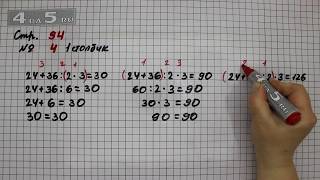 4 НА 5.RU
Стр. 94
№ 4 1 столбик
3 2 1
24+36:(2·3)=30
24+36:6=30
24+6=30
30=30
1 2 3
(24+36):2·3=90
60:2·3=90
30·3=90
90=90
2 1
:2)·3=126